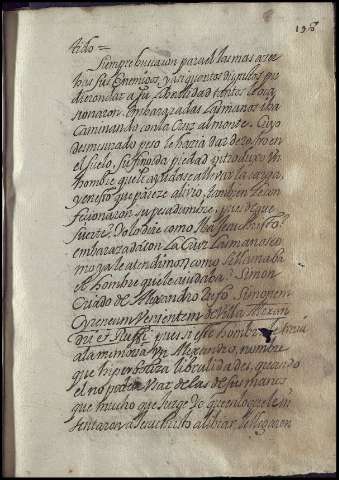 196
tido =
Siempre buscaron para el las mas
sus Enemigos, y assi quentos disgustos pu
dieron dar a su Santidad tantos le oca
sionaron. Embarazadas las manos iba
Caminando con la Cruz al monte. Cuyo
desmesurado peso le hazia dar de ojos en
el suelo, su piedad introduxo un
hombre que le ayudase a llevar la carga,
y en esto que pareze alivio, tambien le con
fecionaron su pesadumbre, pues de que
suerte? Yo lo dire como iba Jesu Christo?
embarazado con la Cruz las manos co
mo ya le atendimos, como se llamaba
el hombre que le ayudaba? Simon
Criado de Alexandro Rufo Simonem
Cyreneum Venientem de Villa Alexan
dri et Ruffi pues si este hombre le traia
a la memoria un Alexandro, nombre
que liberalidades, quando
el no podia usar de las de sus manos
que mucho que Juzge Yo que aloque le in
tentaron a Jesu Christo alibiar le llegaron